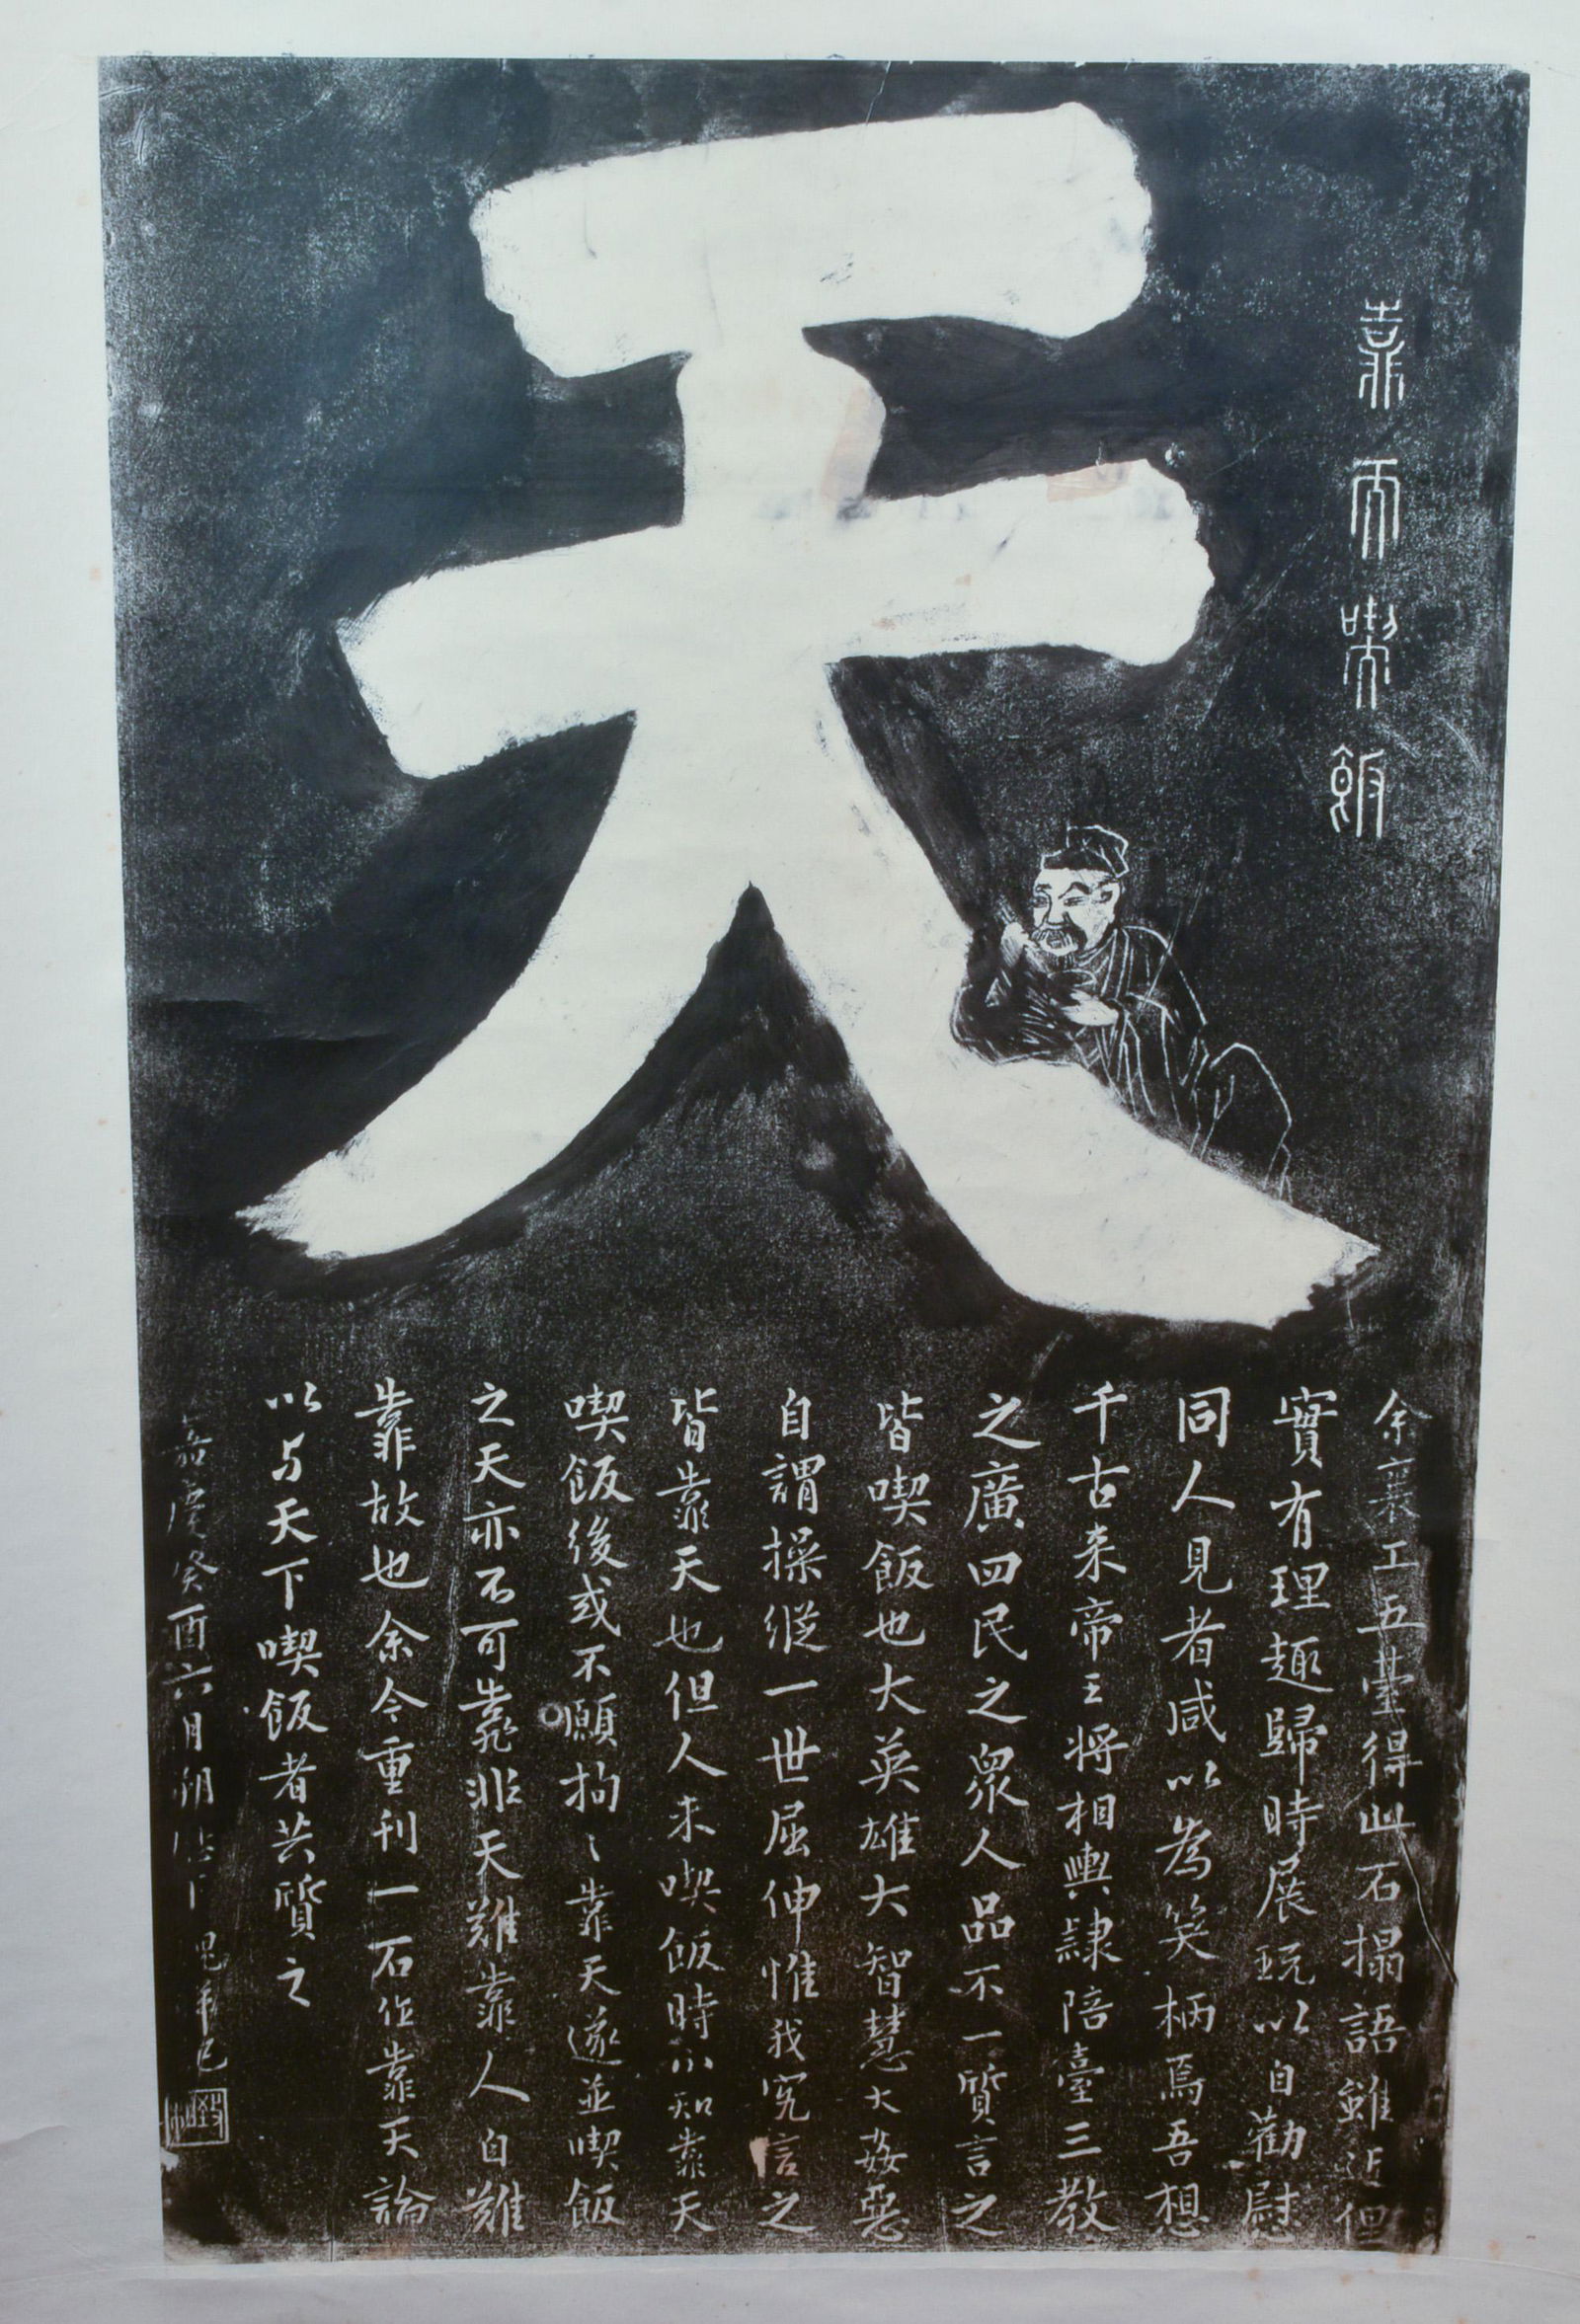 天
靠天喫飯
余襄工五臺得此石搨語雖近俚
實有理趣歸時展玩以自勸慰
同人見者咸以為笑柄焉吾想
千古来帝王將相輿隸陪臺三教
之廣四民之眾人品不一質言之
皆喫飯也大英雄大智慧大姦惡
自謂操縱一世屈伸惟我究言之
皆靠天也但人未喫飯時不知靠天
喫飯後或不願拘〻靠天遂並喫飯
之天亦不可靠非天難靠人自難
靠故也余今重刊一石作靠天論
以与天下喫飯者共質之
嘉慶癸酉六月朔